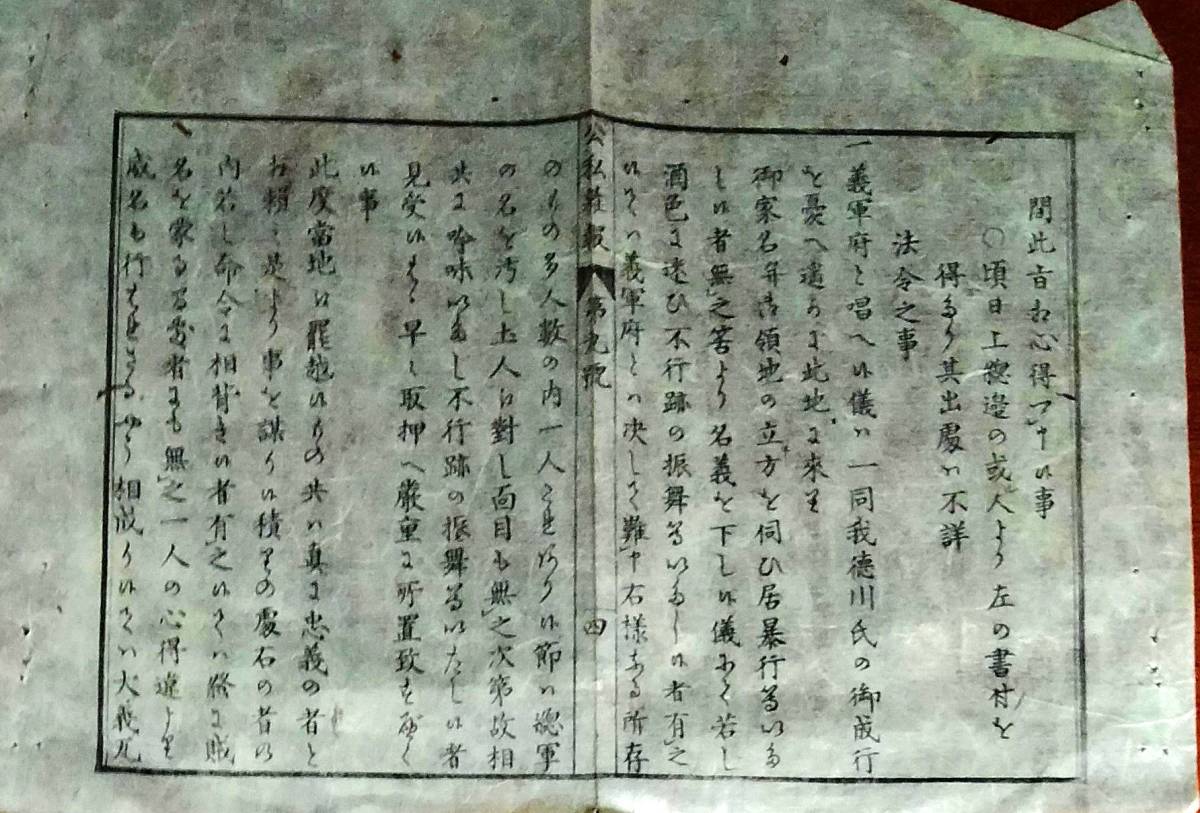 間此旨相心得可申候事
〇頃日上総邉の或人より左の書付を
得たり其出處ハ不詳
法令之事
一義軍府と唱へ候儀ハ一同我徳川氏の御成行
を憂へ遥々に此地に來り
御家名并御領地の立方を伺ひ居暴行等いた
し候者無之筈より名義を下し候儀にて若し
酒色に迷ひ不行跡の振舞等いたし候者有之
候てハ義軍府とハ决して難申右様なる所存
公私雑報 第九號 四
のもの多人数の内一人にてもあり候節ハ總軍
の名を汚し土人に對し面目も無之次第故相
共に吟味いたし不行跡の振舞等いたし候者
見受候はゝ早々取押へ厳重に所置致すべく
候事
此度當地に罷越候もの共ハ真に忠義の者と
相頼ミ是より事を謀り候積りの處右の者の
内若し命令に相背き候者有之候てハ終に賊
名を蒙る
無之一人の心得違より
威名も行
相成り候てハ大義